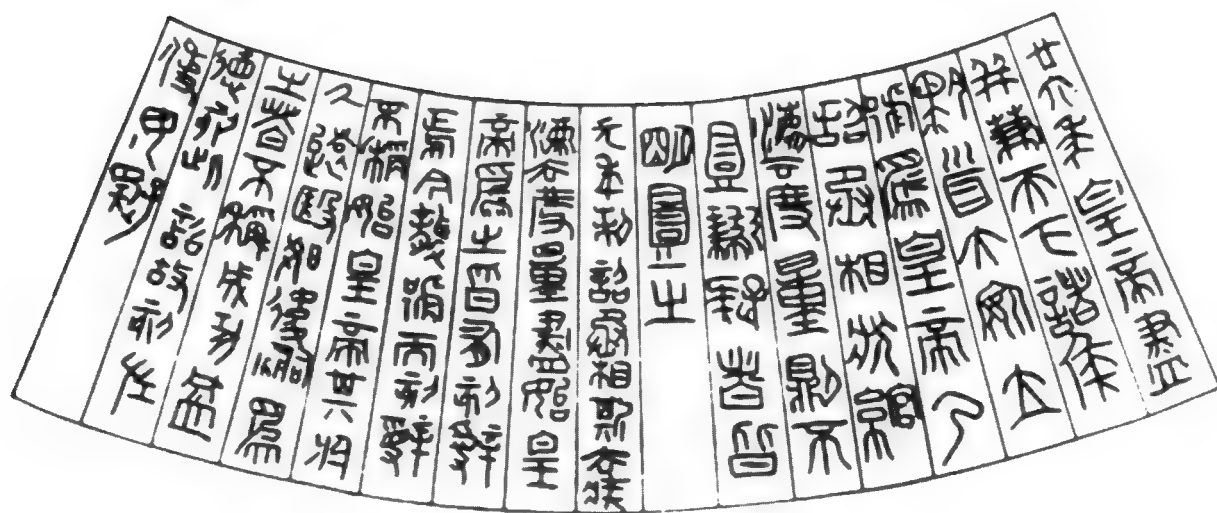 廿六年皇帝盡
并兼天下諸侯
黔首大安立
號爲皇帝乃
詔丞相狀綰
灋度量則不
壹歉疑者皆
明壹之
元年制詔丞相斯去疾
灋度量盡始皇
帝爲之皆有刻辭
焉今襲號而刻辭
不稱始皇帝其於
久遠殹如後嗣爲
之者不稱成功盛
德刻此詔故刻左
使毋疑